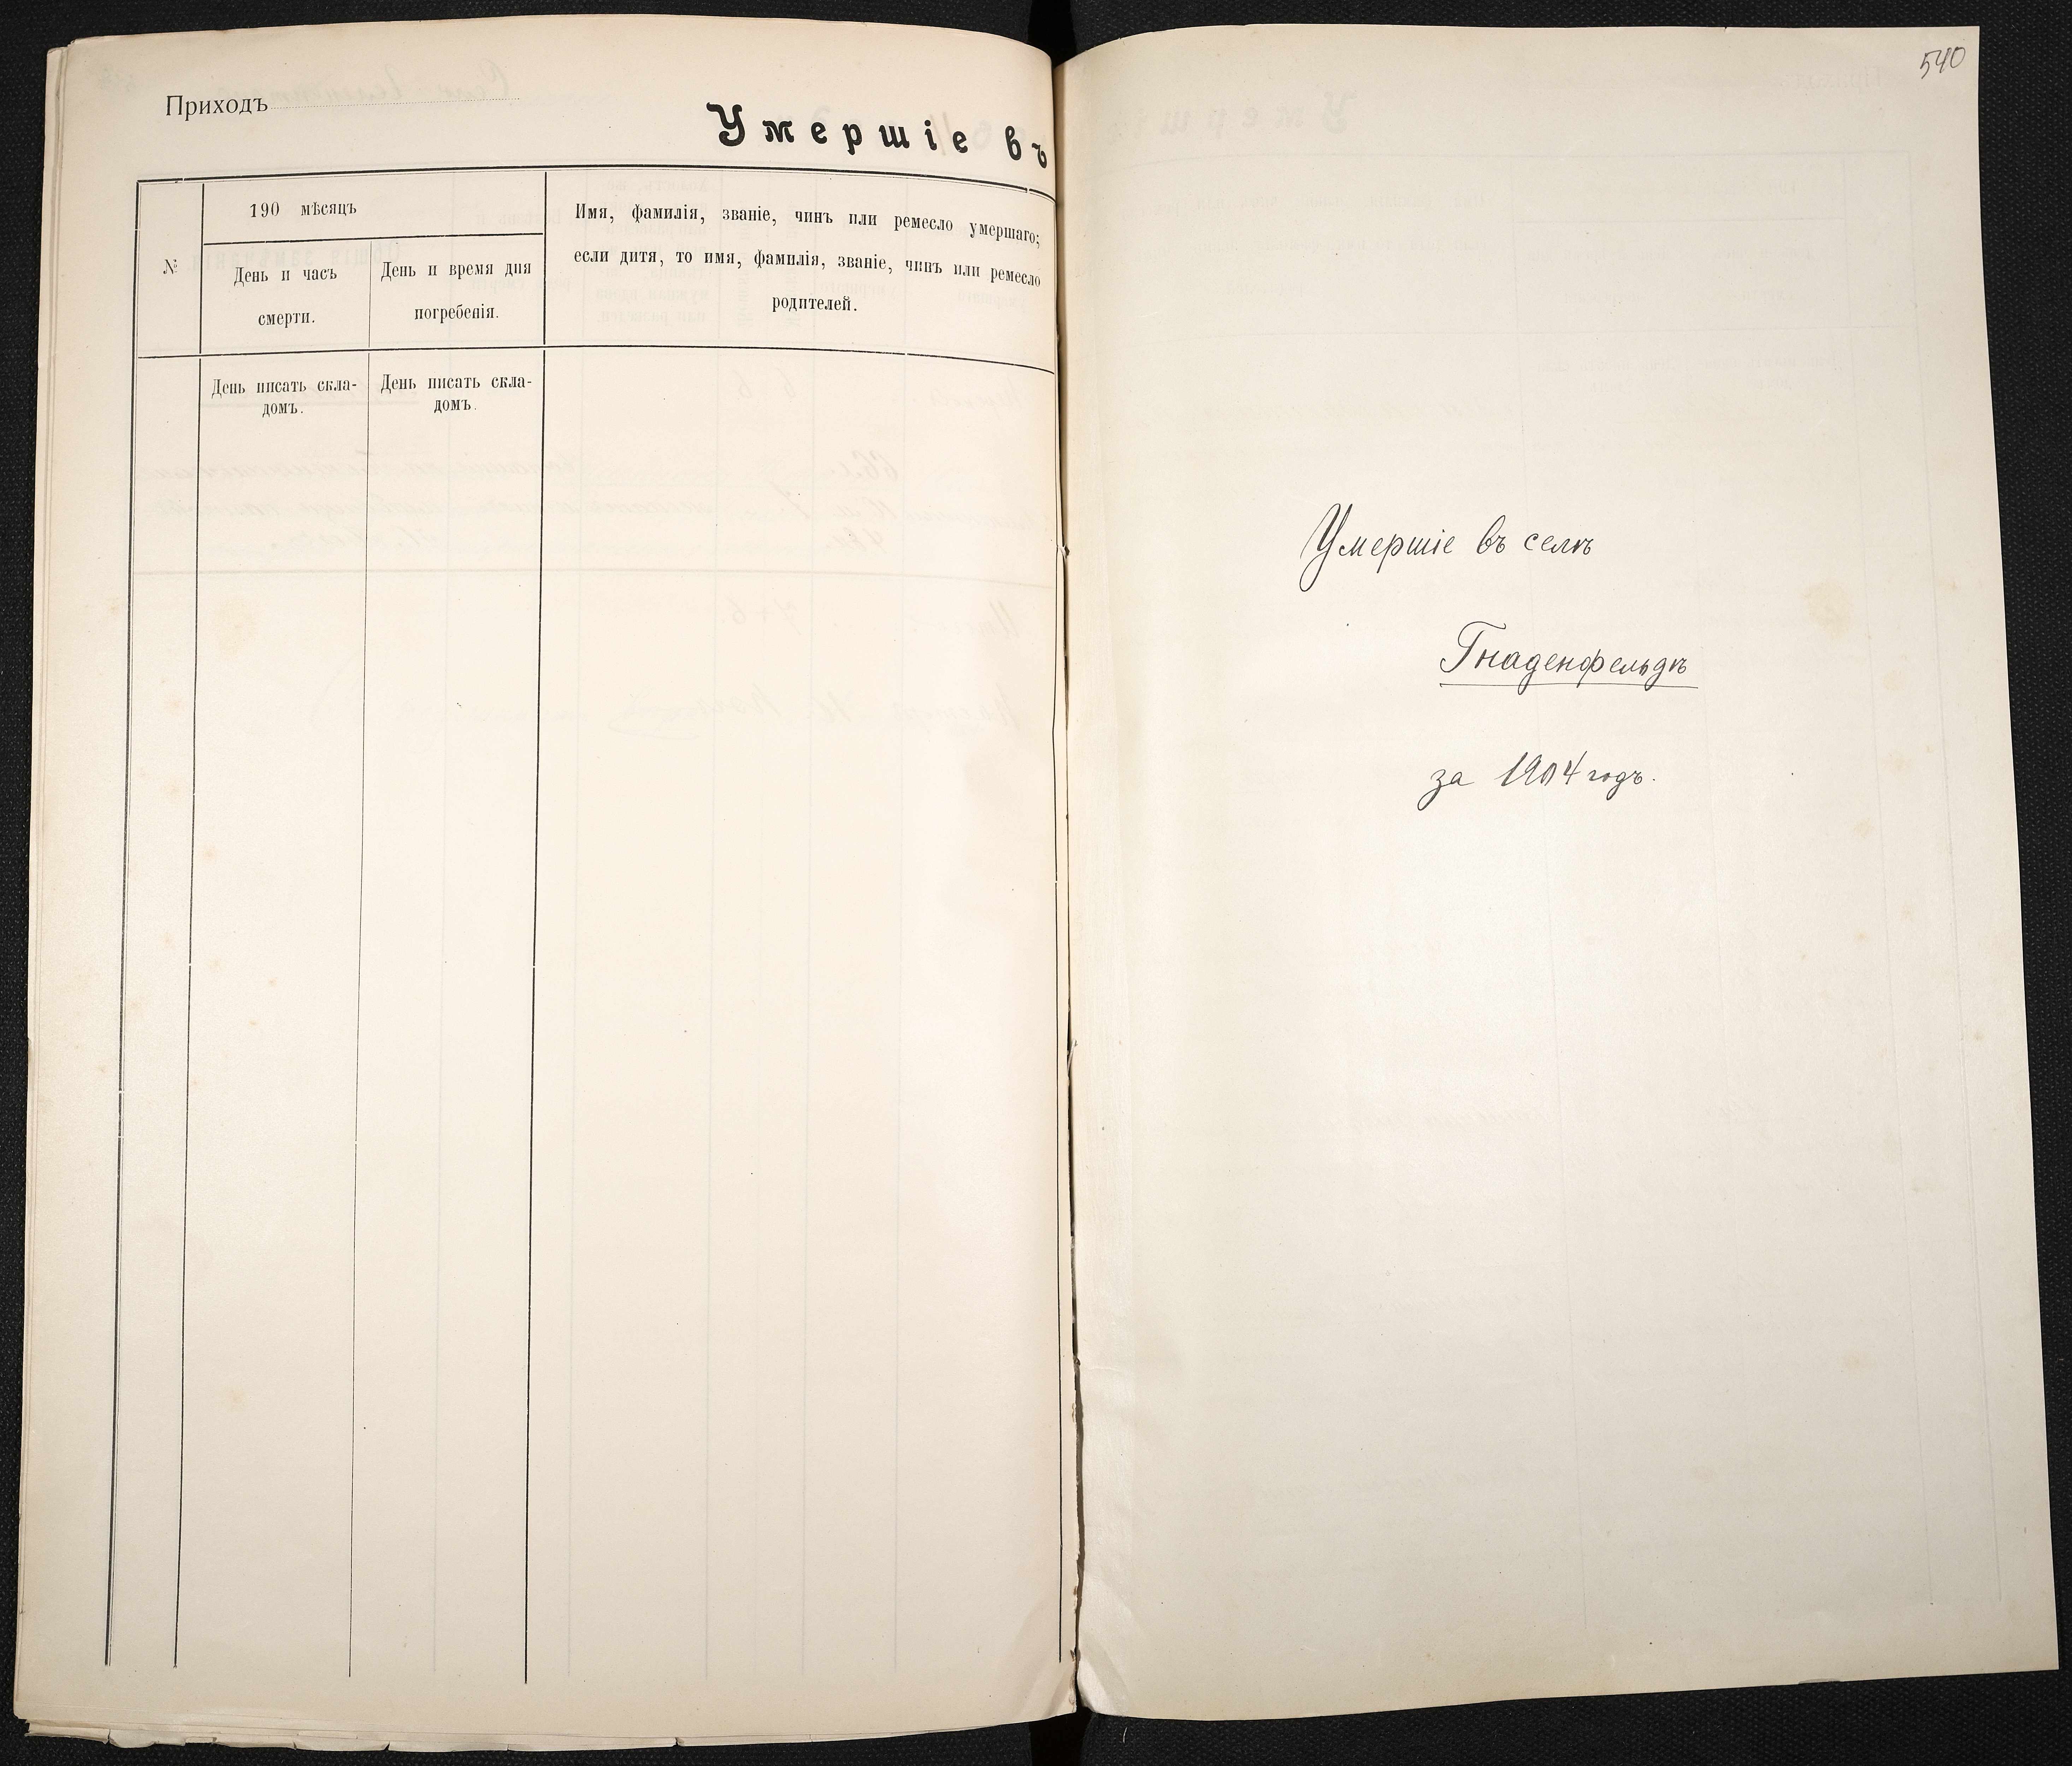 Приходъ
Умершіе въ
№
190 мѣсяцъ
День и часъ
смерти.
День и время дня
погребенія.
Имя, фамилія, званіе, чинъ или ремесло умершаго;
если дитя, то имя, фамилія, званіе, чинъ или ремесло
родителей.
День писать скла-
домъ.
День писать скла-
домъ.
540
Умершіе въ селѣ
Гнаденфельдѣ
за 1904 годъ.